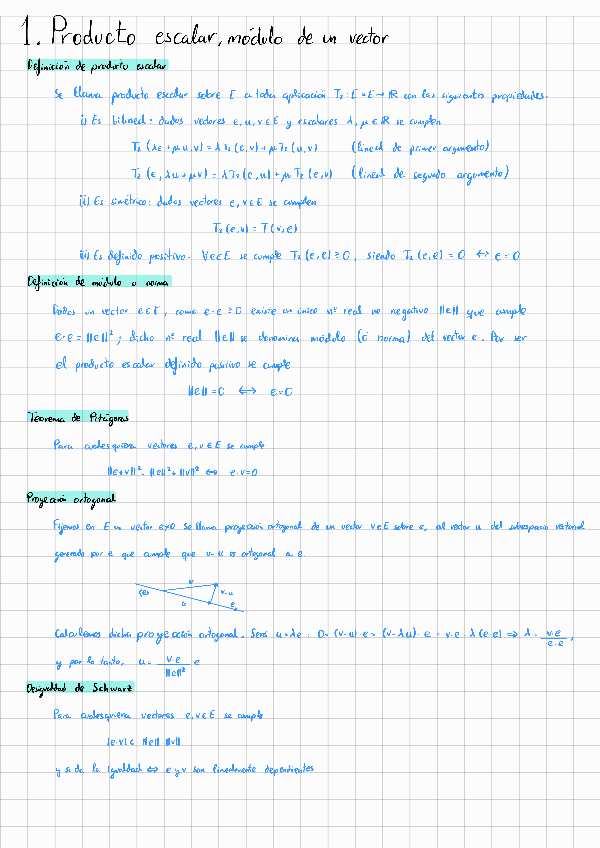 1. Producto escalar, módulo de un vector
Definición de producto escalar
Se llama producto escalar sobre E a toda aplicación T₂: E × E → ℝ con las siguientes propiedades.
i) Es bilineal: dados vectores e, u, v ∈ E y escalares λ, μ ∈ ℝ se cumplen
T₂ (λe + μu, v) = λ T₂ (e, v) + μ T₂ (u, v) (lineal de primer argumento)
T₂ (e, λu + μv) = λ T₂ (e, u) + μ T₂ (e, v) (lineal de segundo argumento)
ii) Es simétrico: dados vectores e, v ∈ E se cumplen
T₂ (e, v) = T (v, e)
iii) Es definido positivo. ∀e ∈ E se cumple T₂ (e, e) ≥ 0, siendo T₂ (e, e) = 0 ↔ e = 0
Definición de módulo o norma
Dados un vector e ∈ E, como e·e ≥ 0 existe un único nº real no negativo ||e|| que cumple
e·e = ||e||²; dicho nº real ||e|| se denomina módulo (o norma) del vector e. Por ser
el producto escalar definido positivo se cumple
||e|| = 0 ⟷ e = 0
Teorema de Pitágoras
Para cualesquiera vectores e, v ∈ E se cumple
||e+v||² = ||e||² + ||v||² ⇔ e·v = 0
Proyección ortogonal
Fijemos en E un vector e≠0 se llama proyección ortogonal de un vector v ∈ E sobre e, al vector u del subespacio vectorial
generado por e que cumple que v-u es ortogonal a e.
⟨e⟩ v u v-u e
Calculemos dicha proyección ortogonal. Será u = λe : 0 = (v-u)·e = (v-λu)·e = v·e - λ(e·e) ⇒ λ = v·e / e·e,
y por lo tanto, u = v·e / ||e||² e
Desigualdad de Schwarz
Para cualesquiera vectores e, v ∈ E se cumple
|e·v| ≤ ||e|| ||v||
y se da la igualdad ⇔ e y v son linealmente dependientes